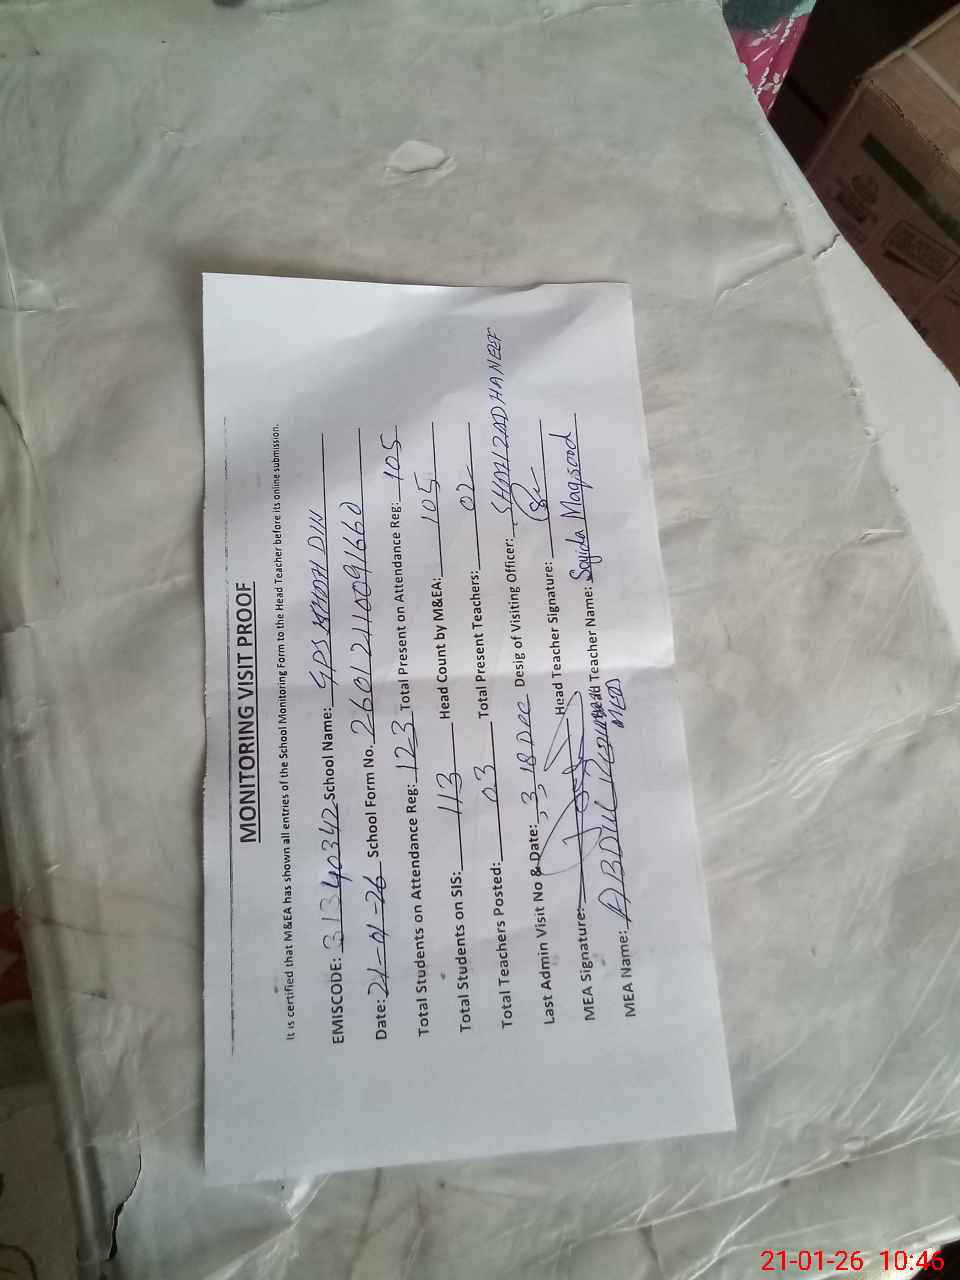 MONITORING VISIT PROOF
It is certified that M&EA has shown all entries of the School Monitoring Form to the Head Teacher before its online submission.
EMISCODE: 31340342 School Name: GPS DIN
Date: 21-01-26 School Form No. 26012110091660
Total Students on Attendance Reg: 123 Total Present on Attendance Reg: 105
Total Students on SIS: 113 Head Count by M&EA: 105
Total Teachers Posted: 03 Total Present Teachers: 02
Last Admin Visit No & Date: 3, 18 Dec Desig of Visiting Officer:
MEA Signature: Head Teacher Signature:
MEA Name: ABDUL Head Teacher Name: Sajida Maqsood
21-01-26 10:46